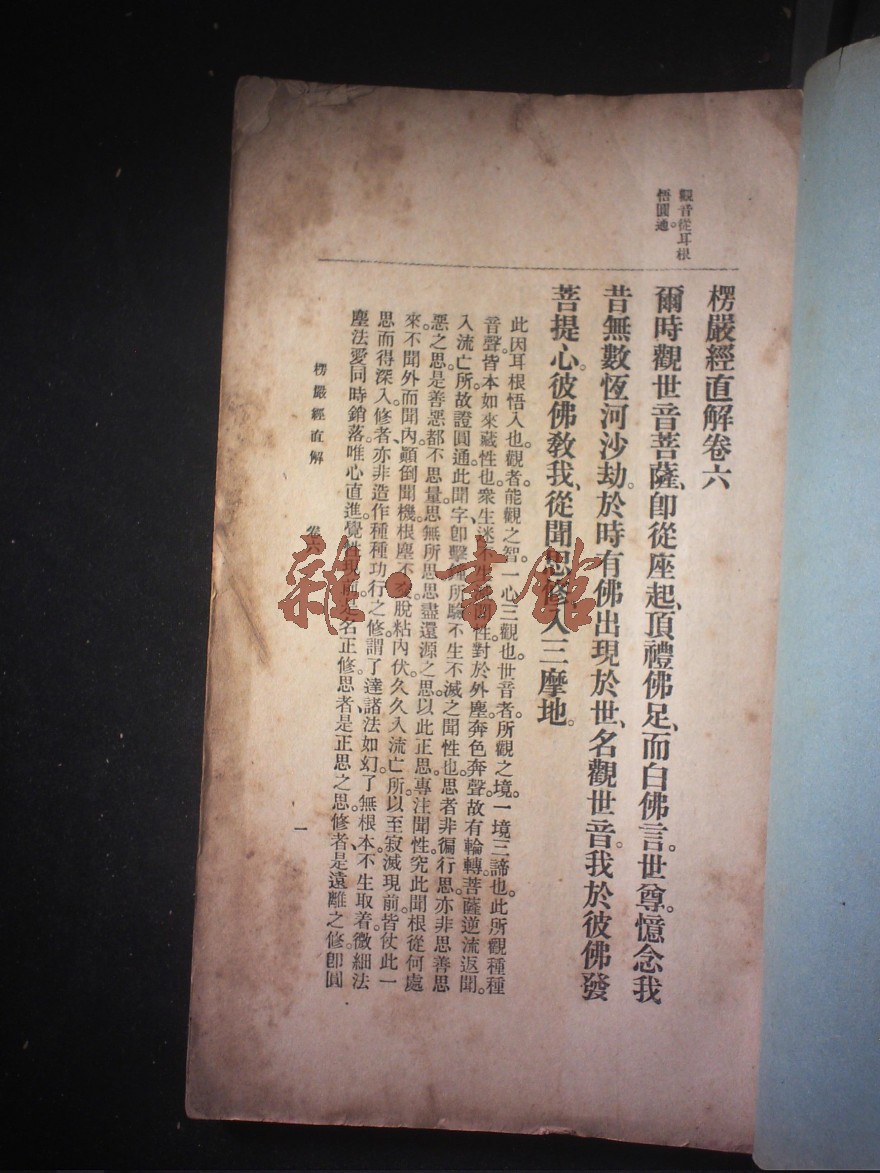 觀音從耳根
悟圓通。
楞嚴經直解卷六
爾時觀世音菩薩、即從座起、頂禮佛足、而白佛言。世尊。憶念我
昔無數恆河沙劫。於時有佛出現於世、名觀世音。我於彼佛發
菩提心。彼佛教我、從聞思修、入三摩地。
此因耳根悟入也。觀者。能觀之智。一心三觀也。世音者。所觀之境。一境三諦也。此所觀種種
音聲。皆本如來藏性也。衆生迷不生滅聞性。對於外塵。奔色奔聲。故有輪轉。菩薩逆流返聞。
入流亡所。故證圓通。此聞字。即擊鐘所驗不生不滅之聞性也。思者。非徧行思。亦非思善思
惡之思。是善惡都不思量。思無所思。思盡還源之思。以此正思。專注聞性。究此聞根從何處
來。不聞外而聞內、顛倒聞機。根塵不 脫粘內伏。久久入流亡所。以至寂滅現前。皆仗此一
思而得深入。修者、亦非造作種種功行之修。謂了達諸法如幻。了無根本。不生取着。微細法
塵法愛。同時銷落。唯心直進。覺性現前。是名正修。思者、是正思之思。修者、是遠離之修。即圓
楞嚴經直解 卷六 一
雜·書館